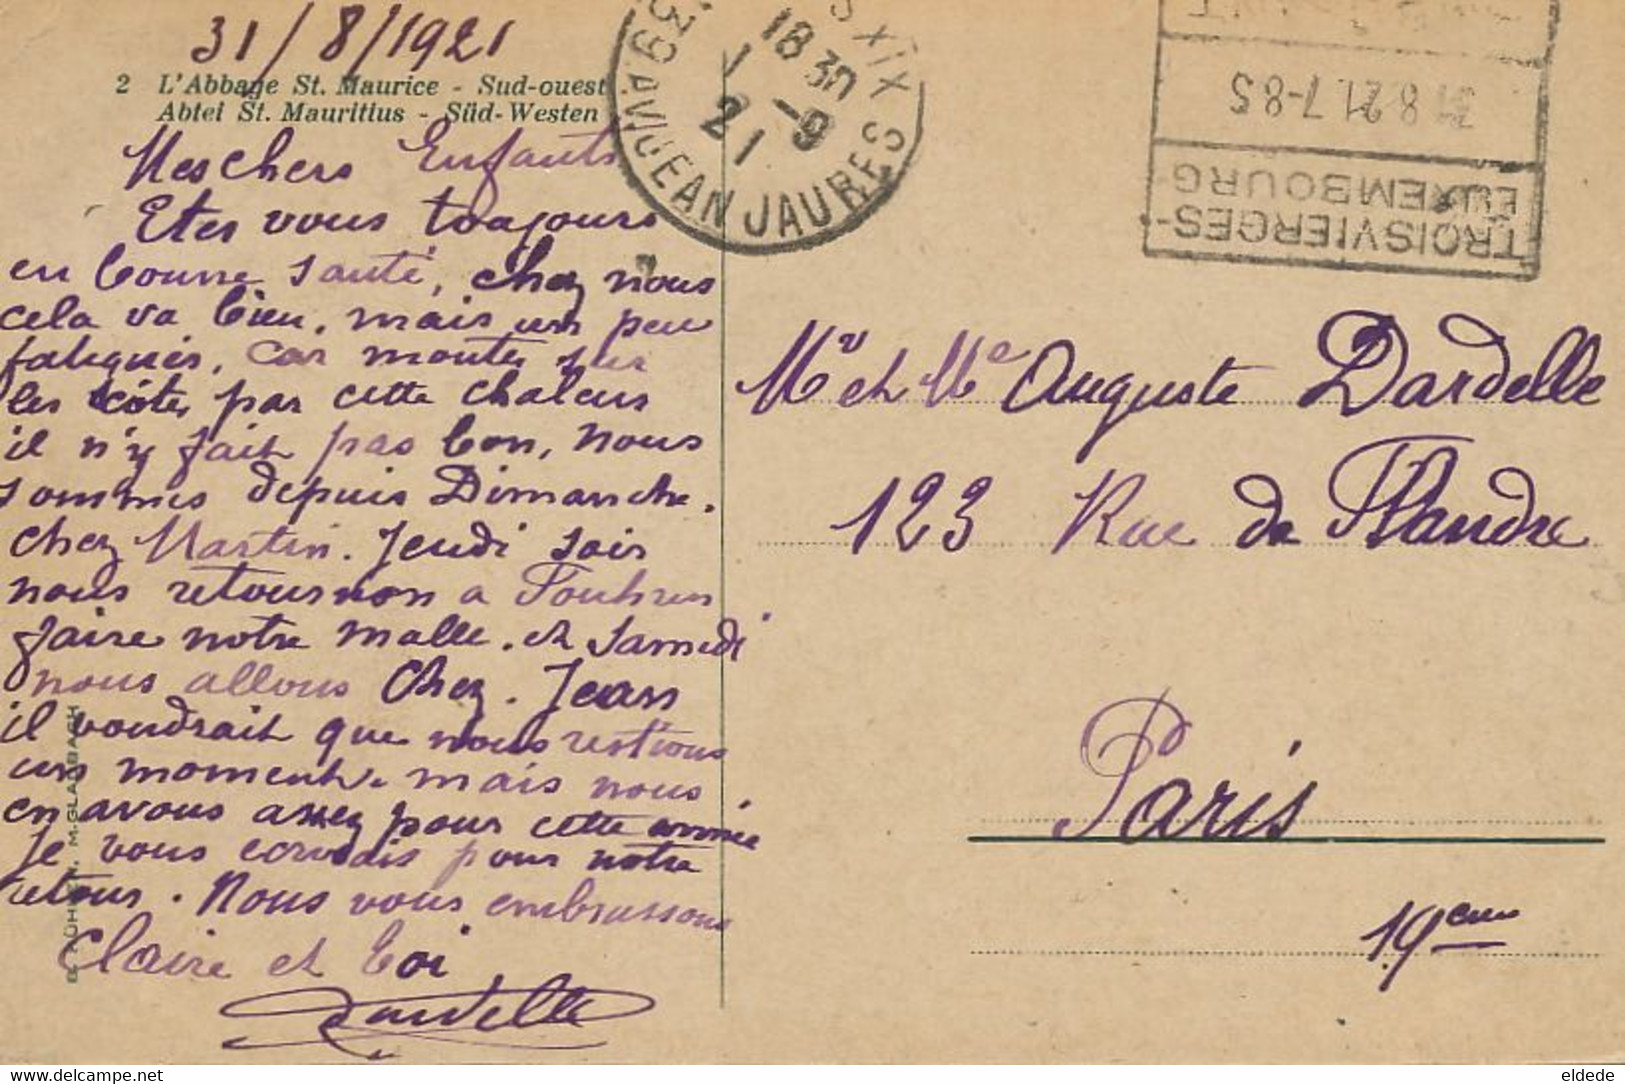 31/8/1921
2 L'Abbaye St. Maurice - Sud-ouest
Abtei St. Mauritius - Süd-Westen
Mes chers Enfants
Etes vous toujours
en bonne santé, chez nous
cela va bien, mais un peu
fatigués, car monter sur
les côtes par cette chaleur
il n'y fait pas bon, nous
sommes depuis Dimanche.
chez Martin. Jeudi soir
nous retournon a
faire notre malle. et Samedi
nous allons Chez. Jean
il voudrait que nous restions
un moment. mais nous
en avons assez pour cette année
Je vous pour notre
retour. Nous vous embrassons
Claire et Loi
Dardelle
M.GLADBACH
XIX
18 30
1 -9
21
39 AV. JEAN JAURES
TROISVIERGES-
LUXEMBOURG
31.8.21.7-8S
Mr et Me Auguste Dardelle
123 Rue de Flandre
Paris
19eme
delcampe.net
eldede